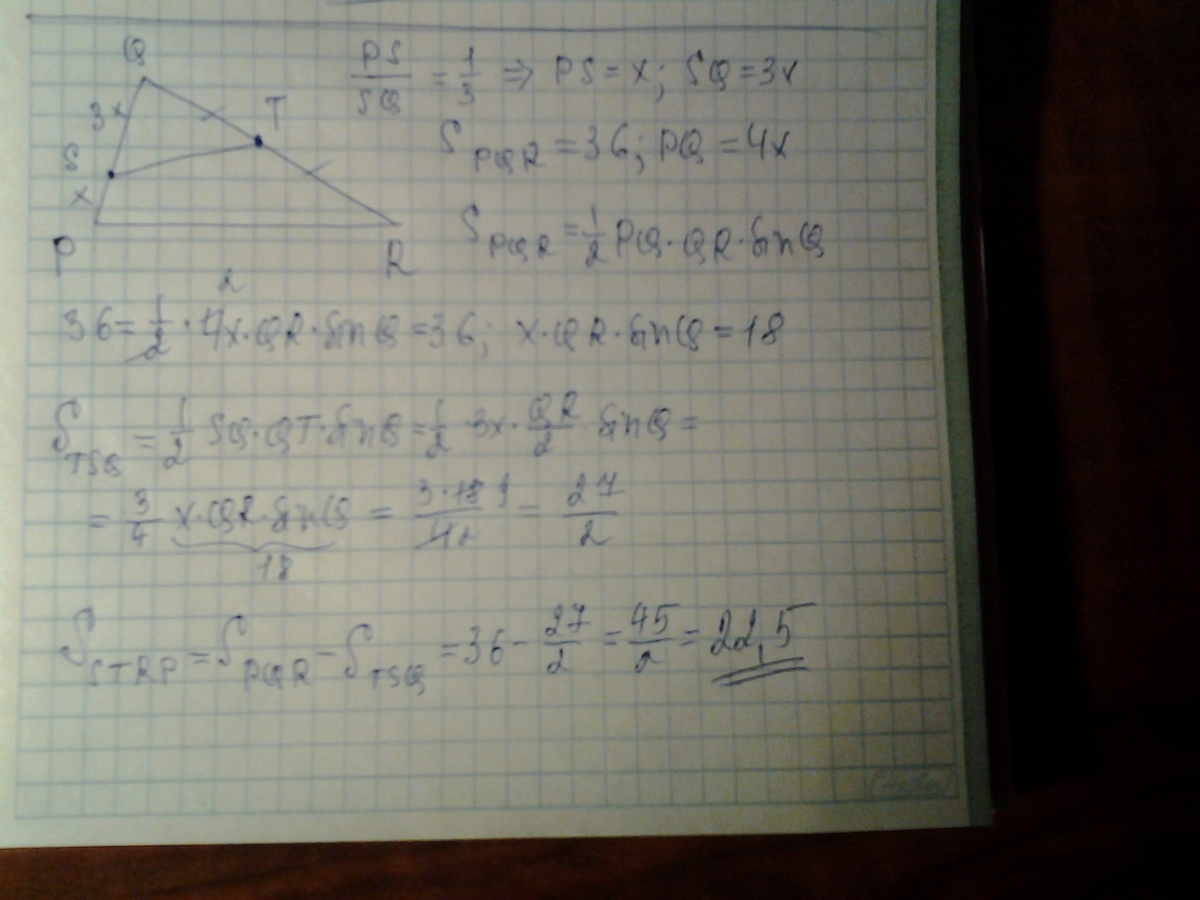 Q
T
3x
S
x
P
R
PS/SQ = 1/3 ⇒ PS = x; SQ = 3x
S_PQR = 36; PQ = 4x
S_PQR = 1/2 PQ·QR·sinQ
2
36 = 1/2 · 4x·QR·sinQ = 36; x·QR·sinQ = 18
S_TSQ = 1/2 SQ·QT·sinQ = 1/2 · 3x · QR/2 · sinQ =
= 3/4 x·QR·sinQ = 3·18 9/4 2 = 27/2
18
S_STRP = S_PQR - S_TSQ = 36 - 27/2 = 45/2 = 22,5